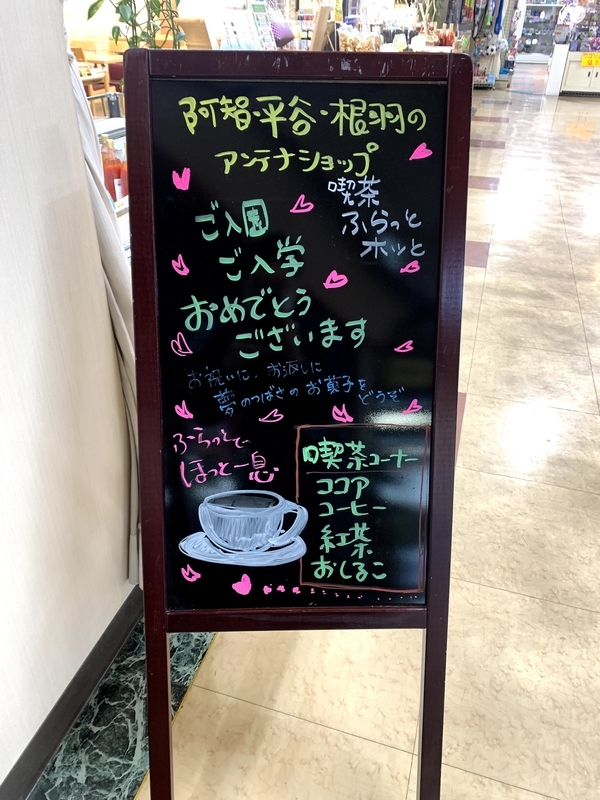 阿智・平谷・根羽の
アンテナショップ
喫茶
ふらっと
ホッと
ご入園
ご入学
おめでとう
ございます
お祝いに、お返しに
夢のつばさのお菓子を
どうぞ
ふらっとで
ほっと一息
喫茶コーナー
ココア
コーヒー
紅茶
おしるこ